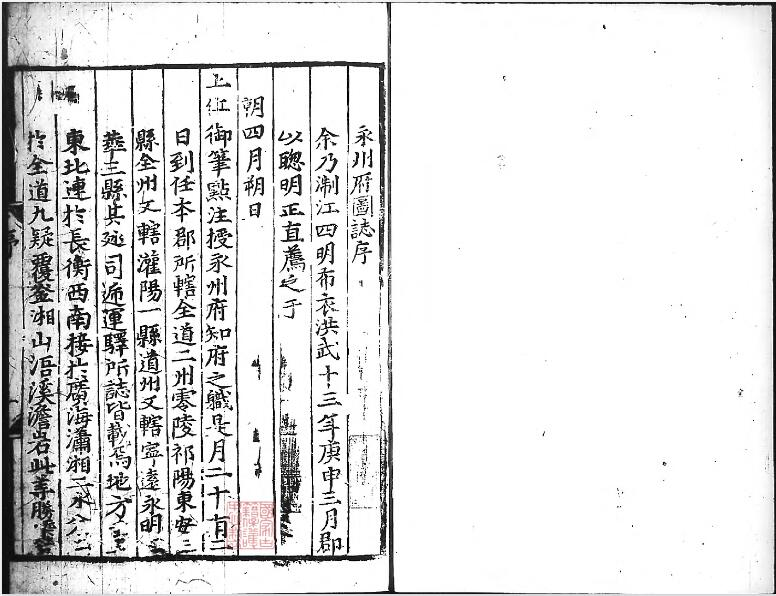 永州府圖誌序
余乃淛江四明布衣洪武十三年庚申三月郡
以聰明正直薦之于
朝四月朔日
上御筆點注授永州府知府之職是月二十有二
日到任本郡所轄全道二州零陵祁陽東安三
縣全州又轄灌陽一縣道州又轄寧遠永明
華三縣其巡司逓運驛所誌皆載焉地方
東北連於長衡西南接於廣海瀟湘二水
於全道九疑覆釜湘山浯溪澹岩此等勝
序